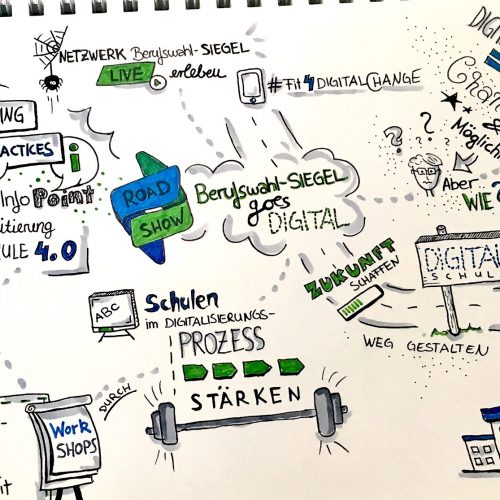 NETZWERK Berufswahl-SIEGEL
LIVE erleben
#Fit4DIGITALCHANGE
DIGIT
Chan
Möglich
Aber
WIE
ING
ACTICES
i
Info Point
itierung
ULE 4.0
ROAD
SHOW
Berufswahl-SIEGEL
goes
DIGITAL
ZUKUNFT
SCHAFFEN
DIGITAL
SCHUL
WEG GESTALTEN
ABC
Schulen
im DIGITALISIERUNGS-
PROZESS
STÄRKEN
DURCH
Work
SHOPS
it